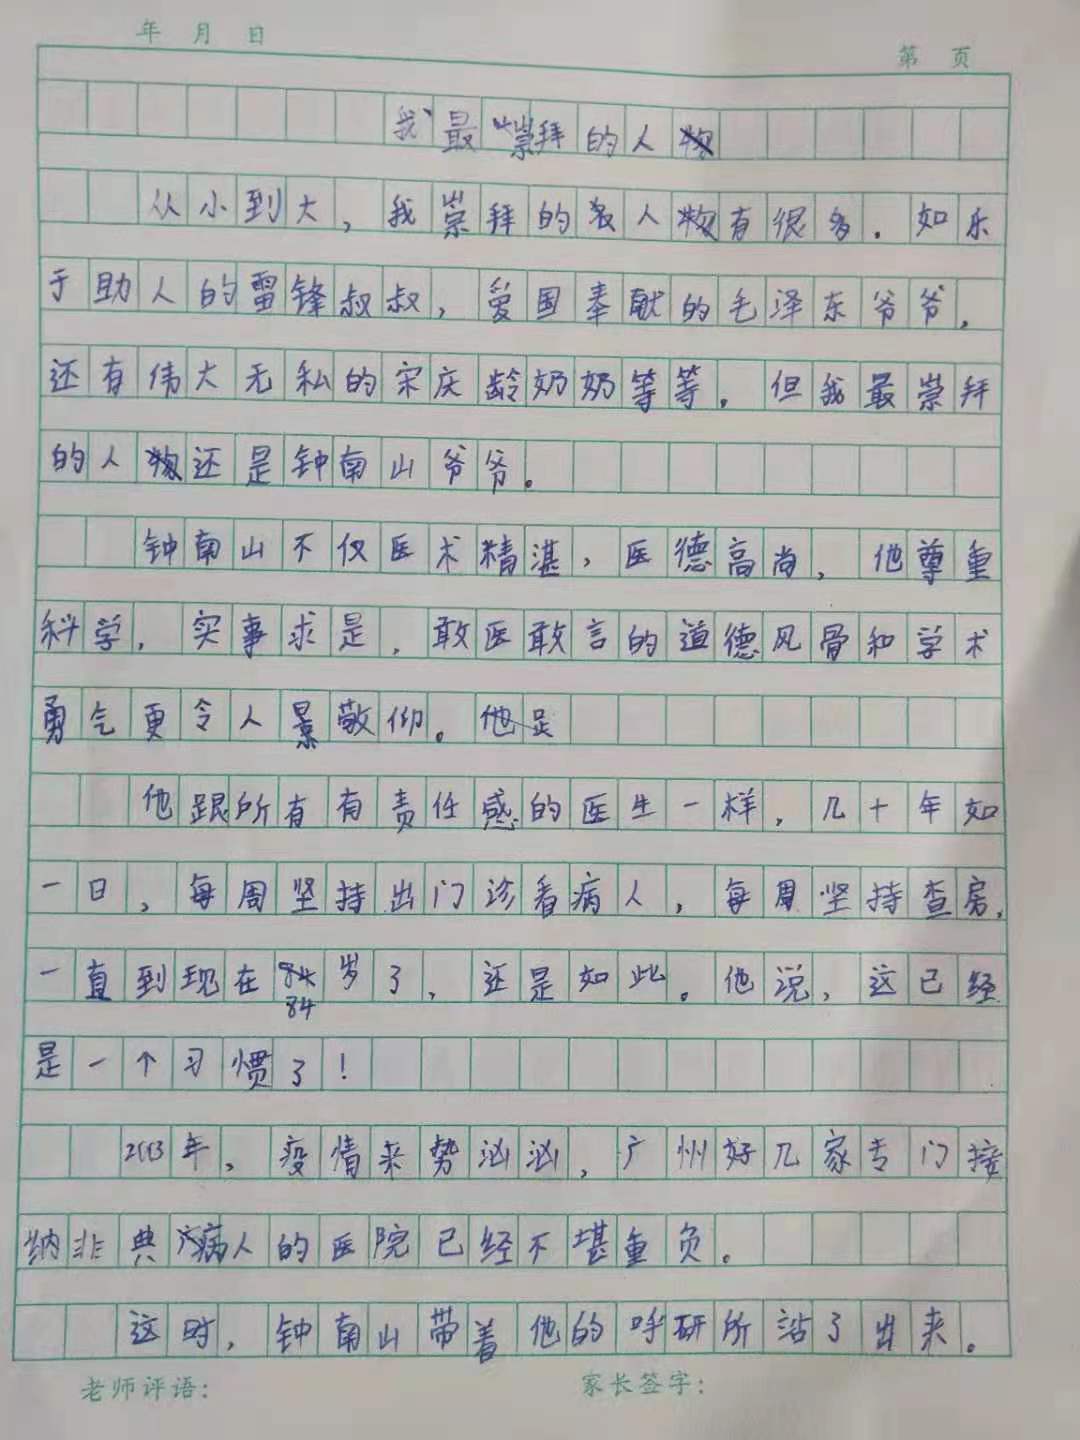 年 月 日
第 页
我最崇拜的人物
从小到大，我崇拜的名人物有很多。如乐
于助人的雷锋叔叔，爱国奉献的毛泽东爷爷，
还有伟大无私的宋庆龄奶奶等等。但我最崇拜
的人物还是钟南山爷爷。
钟南山不仅医术精湛，医德高尚，他尊重
科学，实事求是，敢医敢言的道德风骨和学术
勇气更令人景敬仰。他是
他跟所有有责任感的医生一样，几十年如
一日，每周坚持出门诊看病人，每周坚持查房，
一直到现在84岁了，还是如此。他说，这已经
84
是一个习惯了！
2003年，疫情来势汹汹，广州好几家专门接
纳非典病人的医院已经不堪重负。
这时，钟南山带着他的呼研所站了出来。
老师评语：
家长签字：